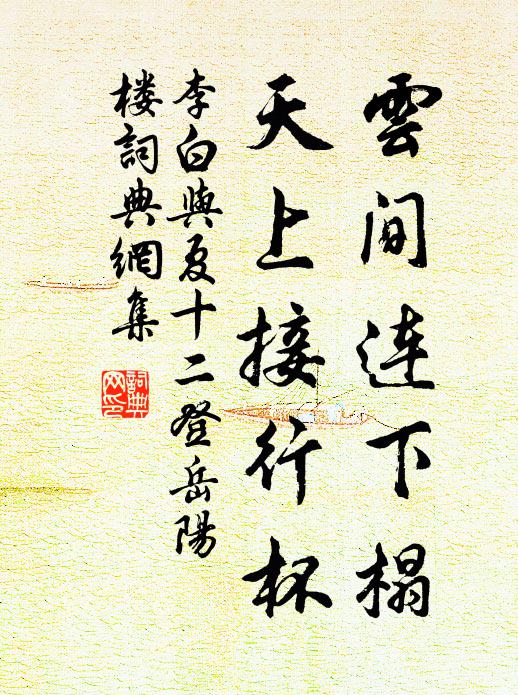 雲间连下榻
天上接行杯
李白與夏十二登岳陽
楼詞典網集
詞典网印